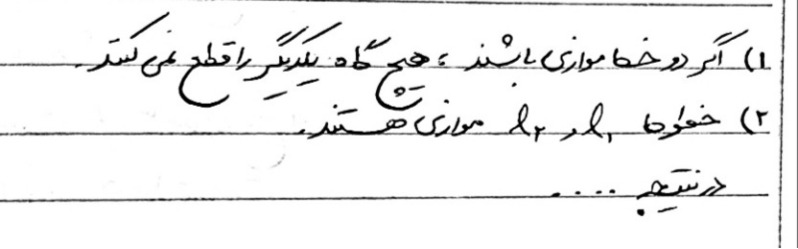 ۱) اگر دو خط موازی باشند ، هیچ گاه یکدیگر را قطع نمی کنند.
۲) خطوط l₁ و l₂ موازی هستند.
در نتیجه .....